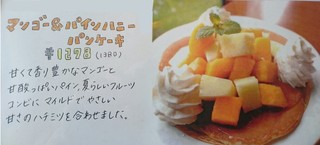 マンゴー&パインハニー
パンケーキ
¥1278(1380)
甘くて香り豊かなマンゴーと
甘酸っぱいパイン、夏らしいフルーツ
コンビに マイルドでやさしい
甘さのハチミツを合わせました。